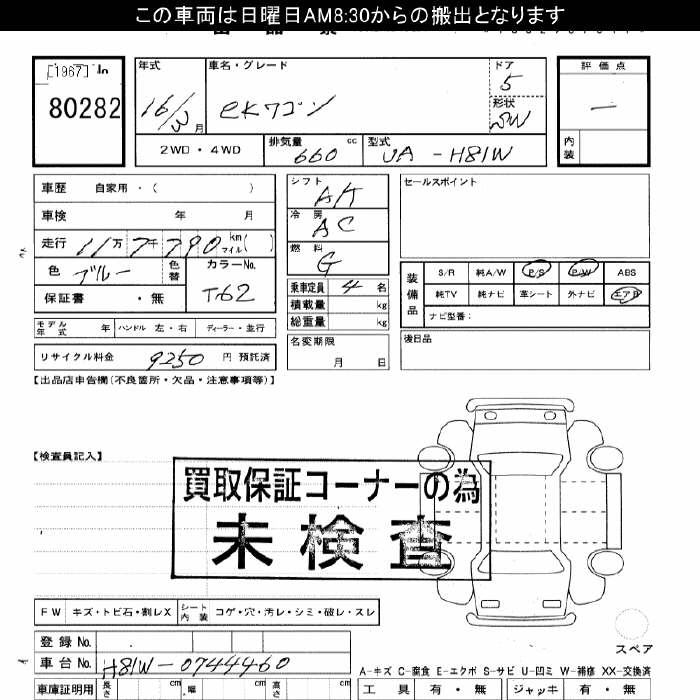 この車両は日曜日AM8:30からの搬出となります
[1967]
80282
年式 車名・グレード ドア 評価点
16/3月 eKワゴン 5
形状
SW
2WD・4WD 排気量 660 cc 型式 UA-H81W
内装
車歴 自家用・( )
車検 年 月
走行 11万7千790 km マイル( )
色 ブルー 色替 カラーNo. T62
保証書 ・無
シフト A/T
冷房 AC
燃料 G
乗車定員 4 名
積載量 kg
総重量 kg
セールスポイント
装備品
S/R 純A/W P/S P/W ABS
純TV 純ナビ 革シート 外ナビ エアB
ナビ型番:
モデル年式 年 ハンドル 左・右 ディーラー・並行
名変期限
月 日
後日品
リサイクル料金 9250 円 預託済
【出品店申告欄(不良箇所・欠品・注意事項等)】
【検査員記入】
買取保証コーナーの為
未検査
FW キズ・トビ石・割レX シート内装 コゲ・穴・汚レ・シミ・破レ・スレ
スペア
登録No.
車台No. H81W-0744460
A-キズ C-腐食 E-エクボ S-サビ U-凹ミ W-補修 XX-交換済
車庫証明用 長さ cm 幅 cm 高さ cm
工具 有・無 ジャッキ 有・無